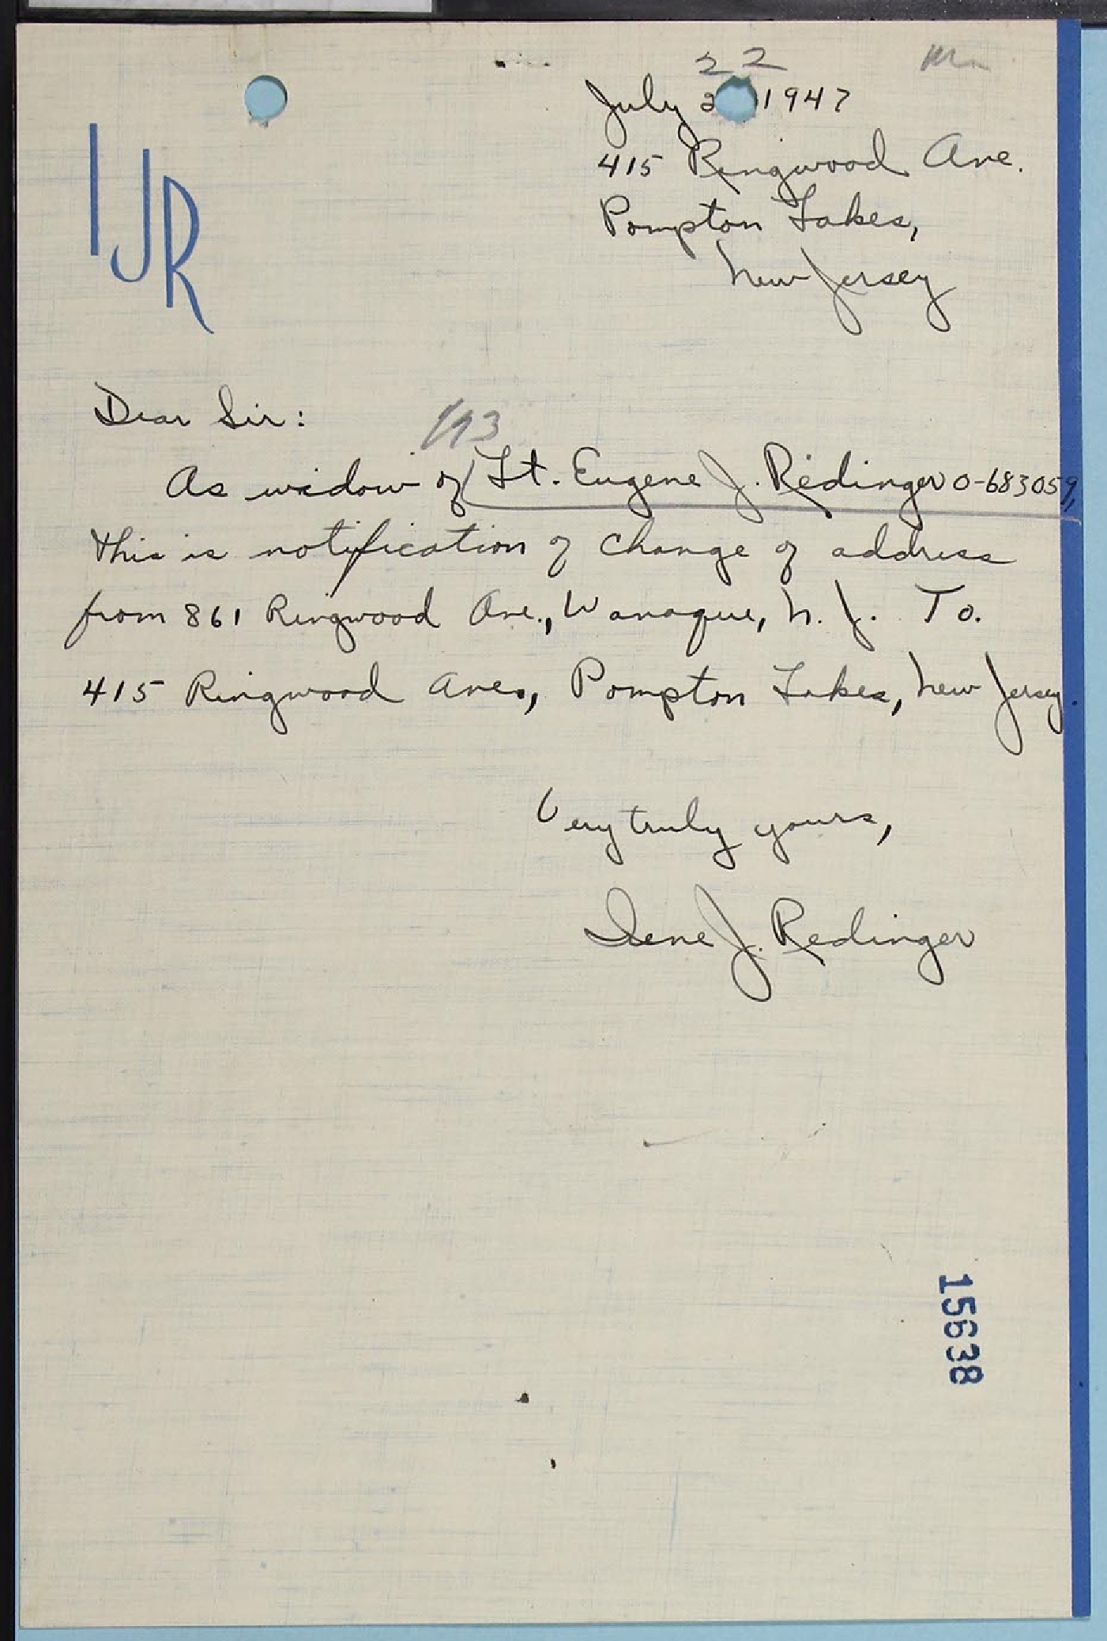 22
July 2 1947
IJR
415 Ringwood Ave.
Pompton Lakes,
New Jersey
Dear Sir:
293
As widow of Lt. Eugene J. Redinger O-683059,
this is notification of change of address
from 861 Ringwood Ave., Wanaque, N. J. To.
415 Ringwood Ave., Pompton Lakes, New Jersey.
Very truly yours,
Irene J. Redinger
15638